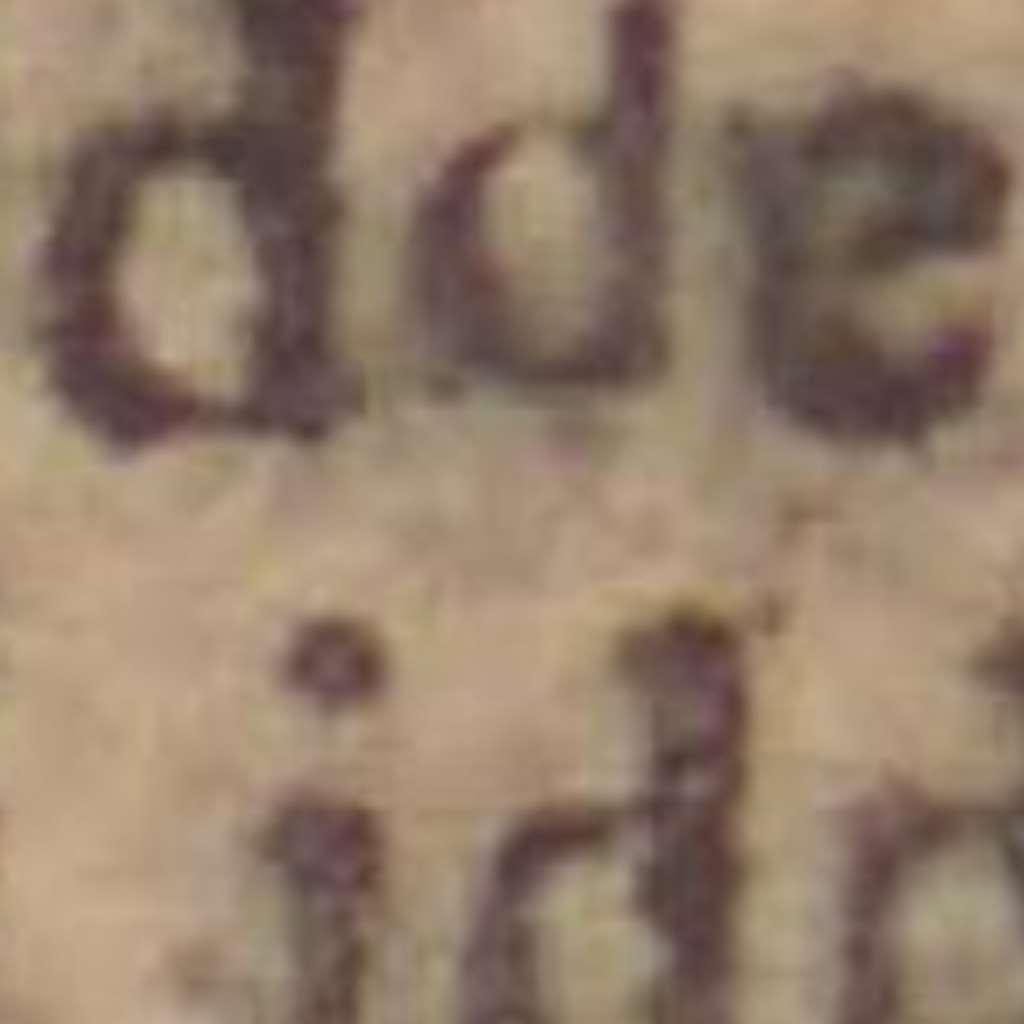 dde
id